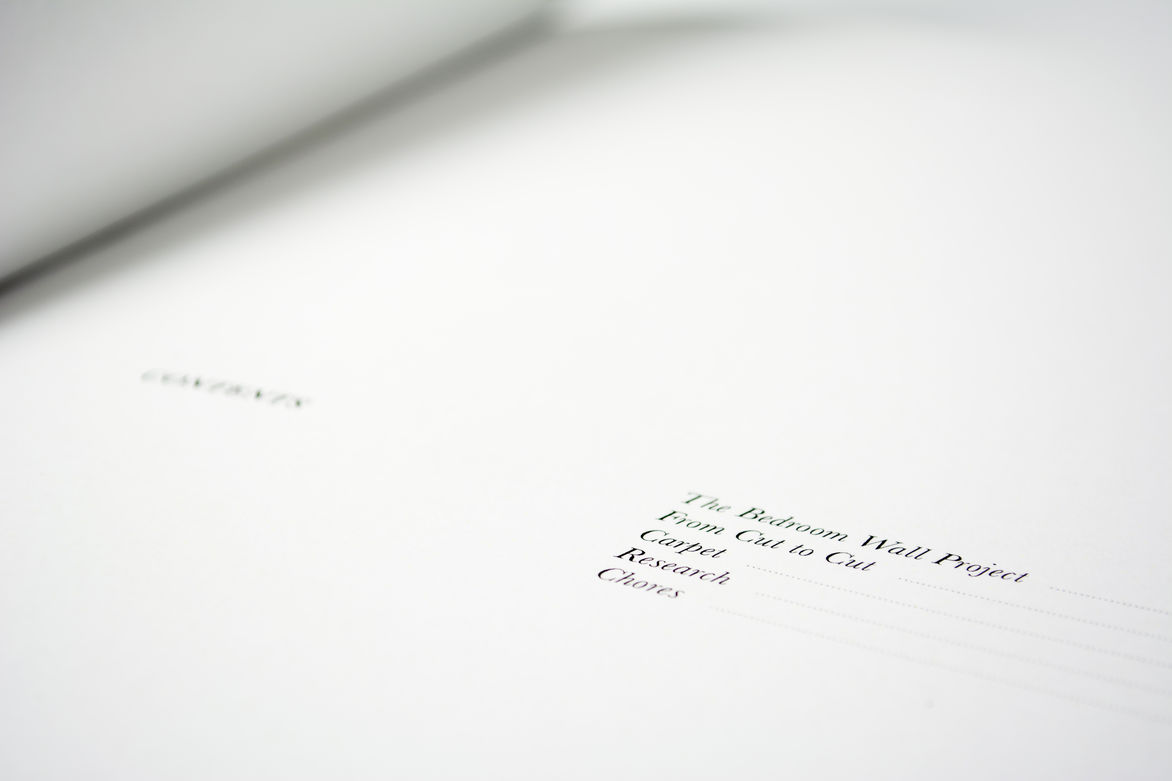 CONTENTS
The Bedroom Wall Project
From Cut to Cut
Carpet
Research
Chores